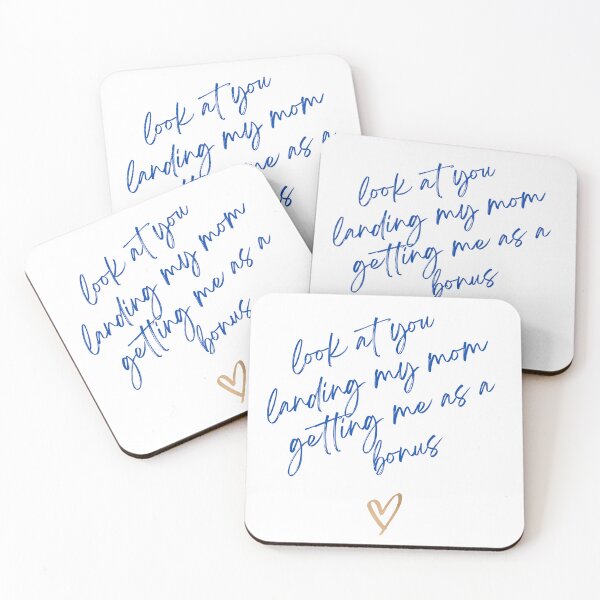 look at you
landing my mom
getting me as a
bonus
look at you
landing my mom
getting me as a
bonus
look at you
landing my mom
getting me as a
bonus
look at you
landing my mom
getting me as a
bonus